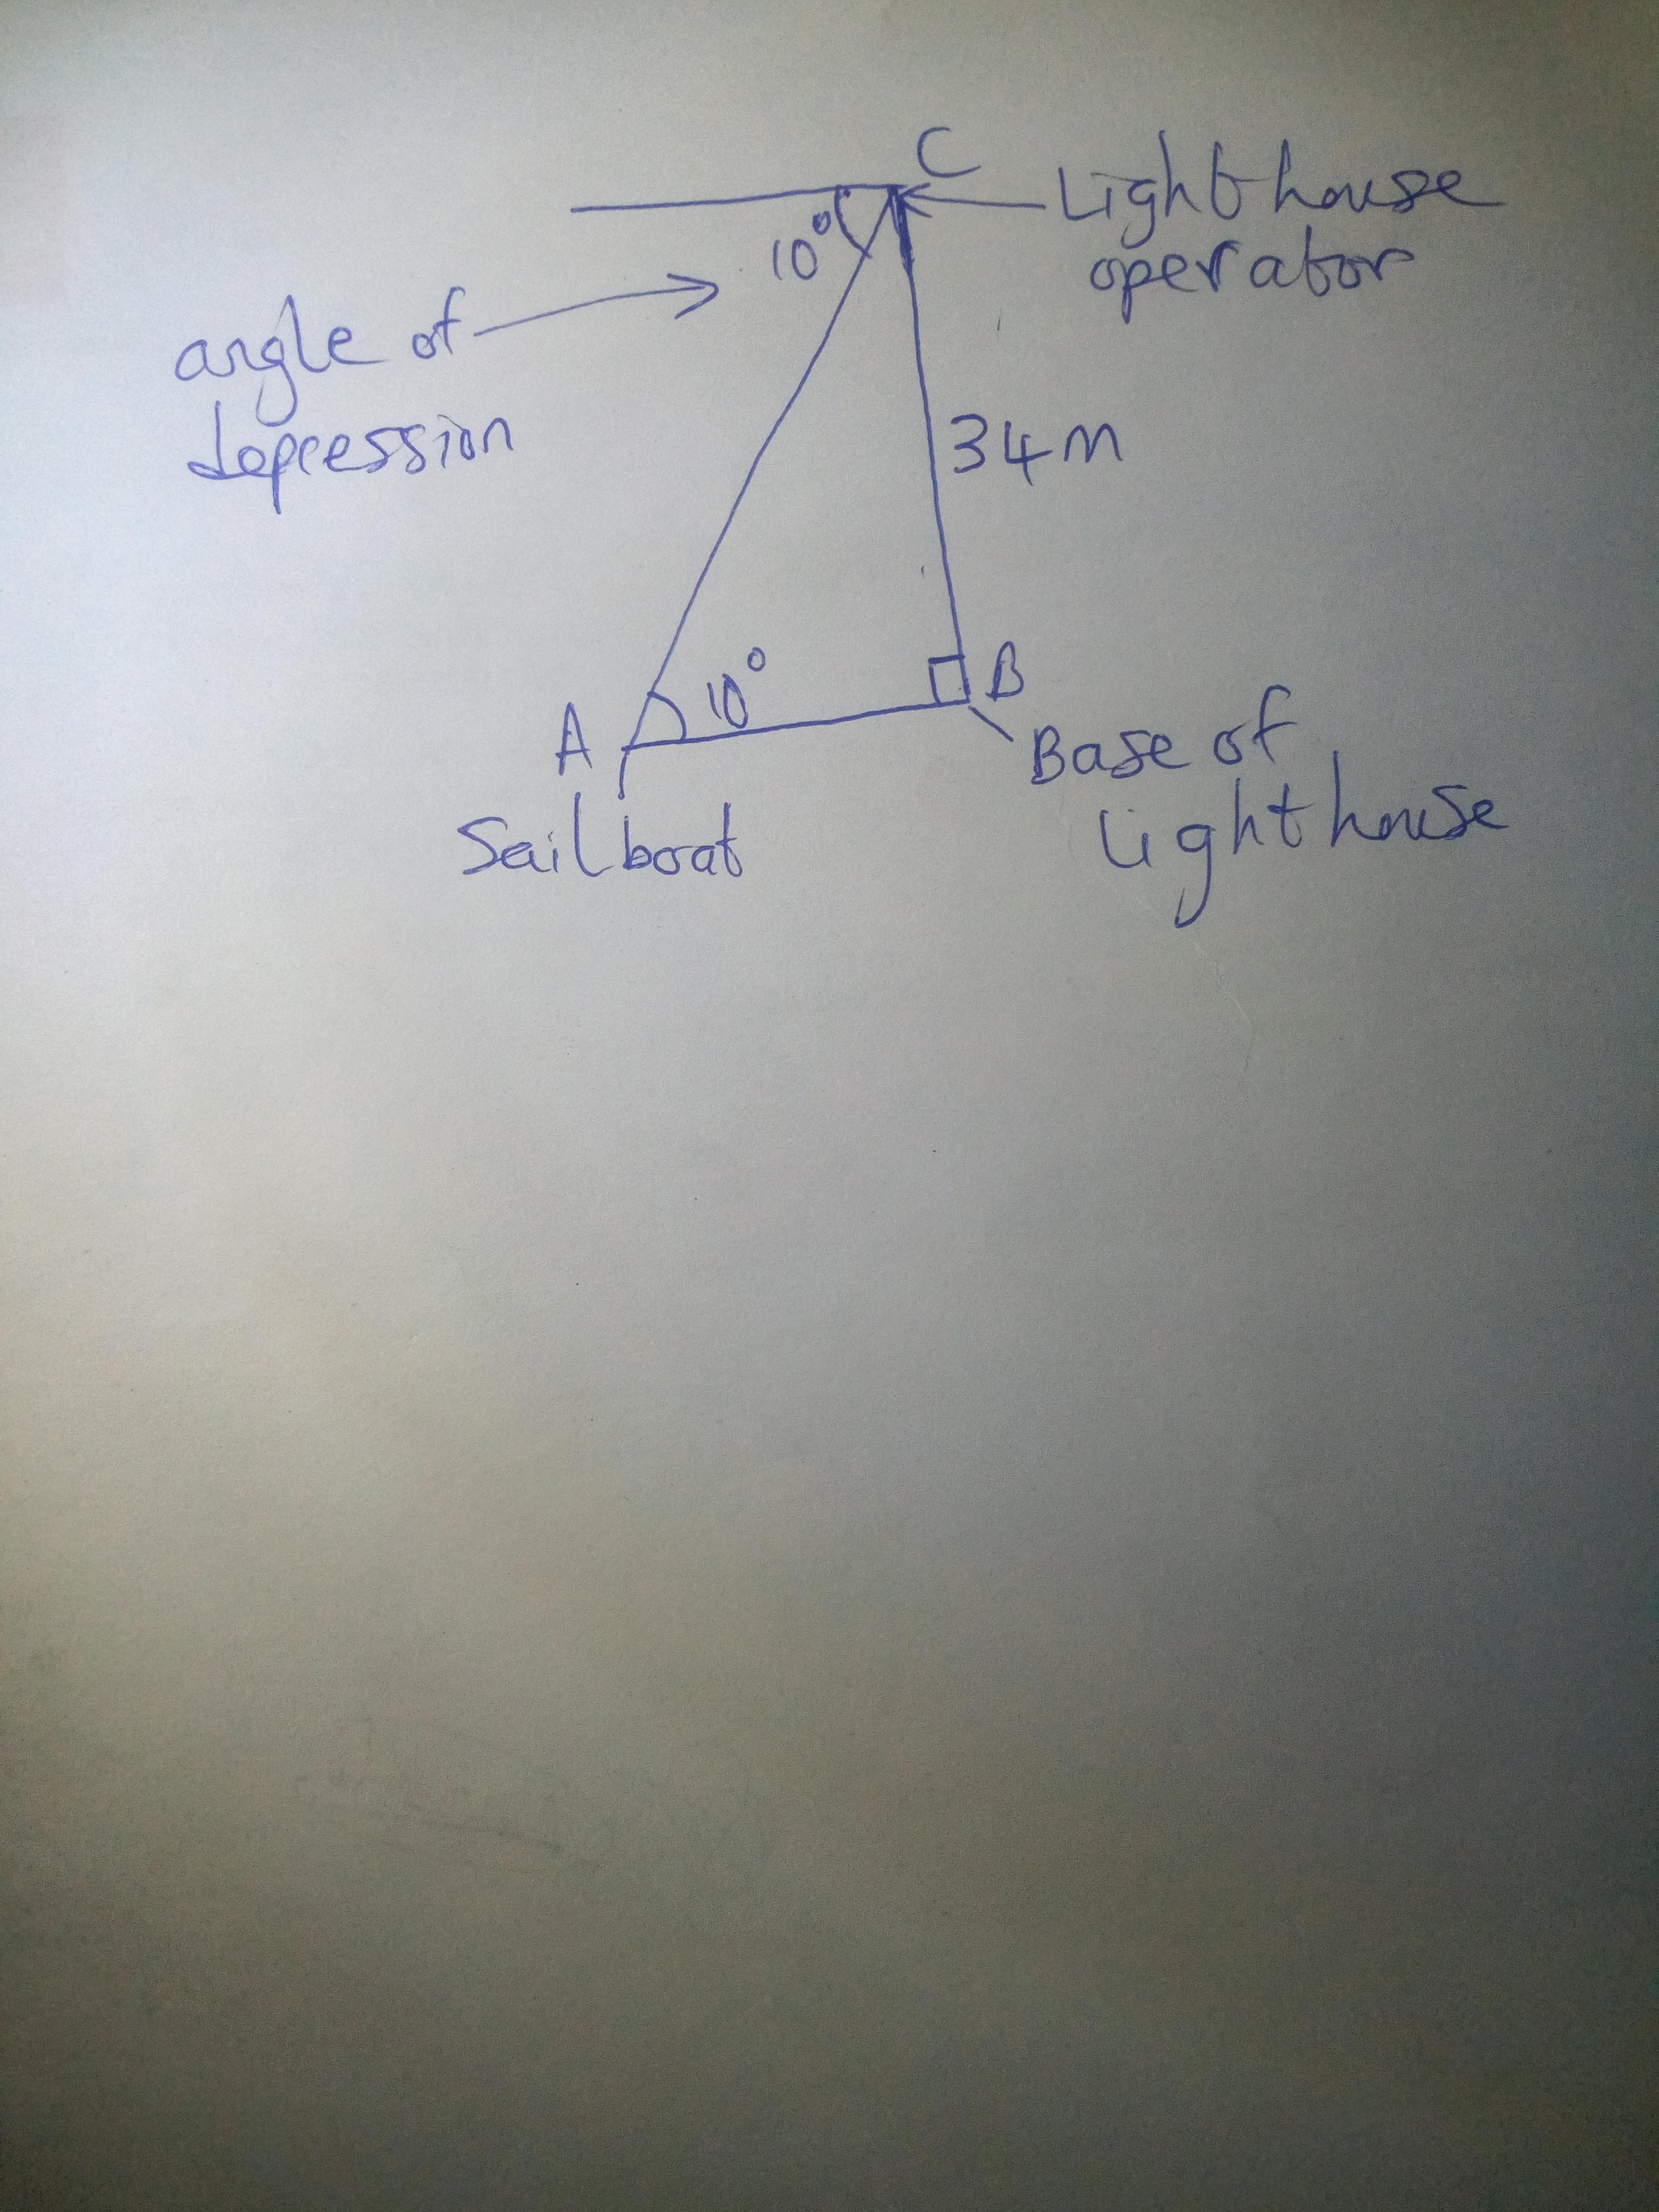 C
Lighthouse
operator
10°
angle of
depression
34m
10°
A
B
Base of
lighthouse
Sailboat